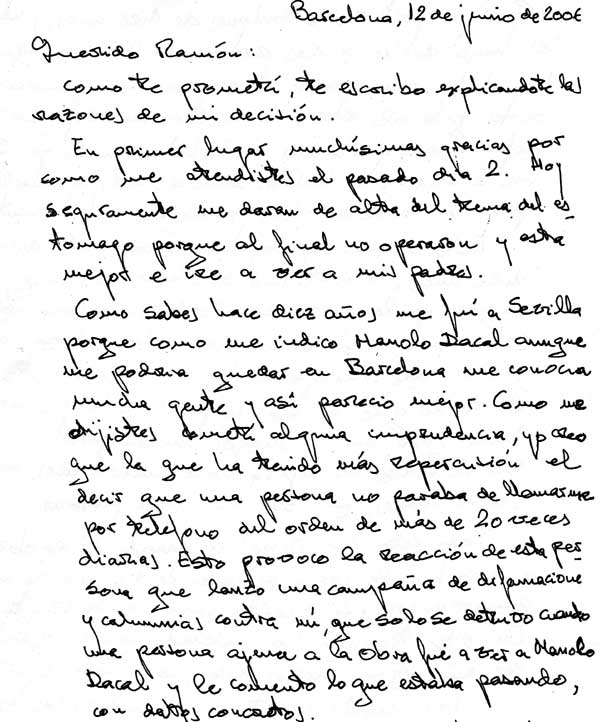 Barcelona, 12 de junio de 2006
Querido Ramón:
como te prometí, te escribo explicandote las
razones de mi decisión.
En primer lugar muchísimas gracias por
como me atendistes el pasado día 2. Hoy
seguramente me daran de alta del tema del es-
tomago porque al final no operaron y esta
mejor e ire a ver a mis padres.
Como sabes hace diez años me fuí a Sevilla
porque como me indico Manolo Dacal aunque
me podria quedar en Barcelona me conocia
mucha gente y así parecio mejor. Como me
dijistes cometí alguna imprudencia, yo creo
que la que ha tenido más repercusión el
decir que una persona no paraba de llamarme
por telefono del orden de más de 20 veces
diarias. Esto provoco la reacción de esta per-
sona que lanzo una campaña de difamacione
y calumnias contra mí, que solo se detuvo cuando
una persona ajena a la Obra fué a ver a Manolo
Dacal y le comento lo que estaba pasando,
con datos concretos.